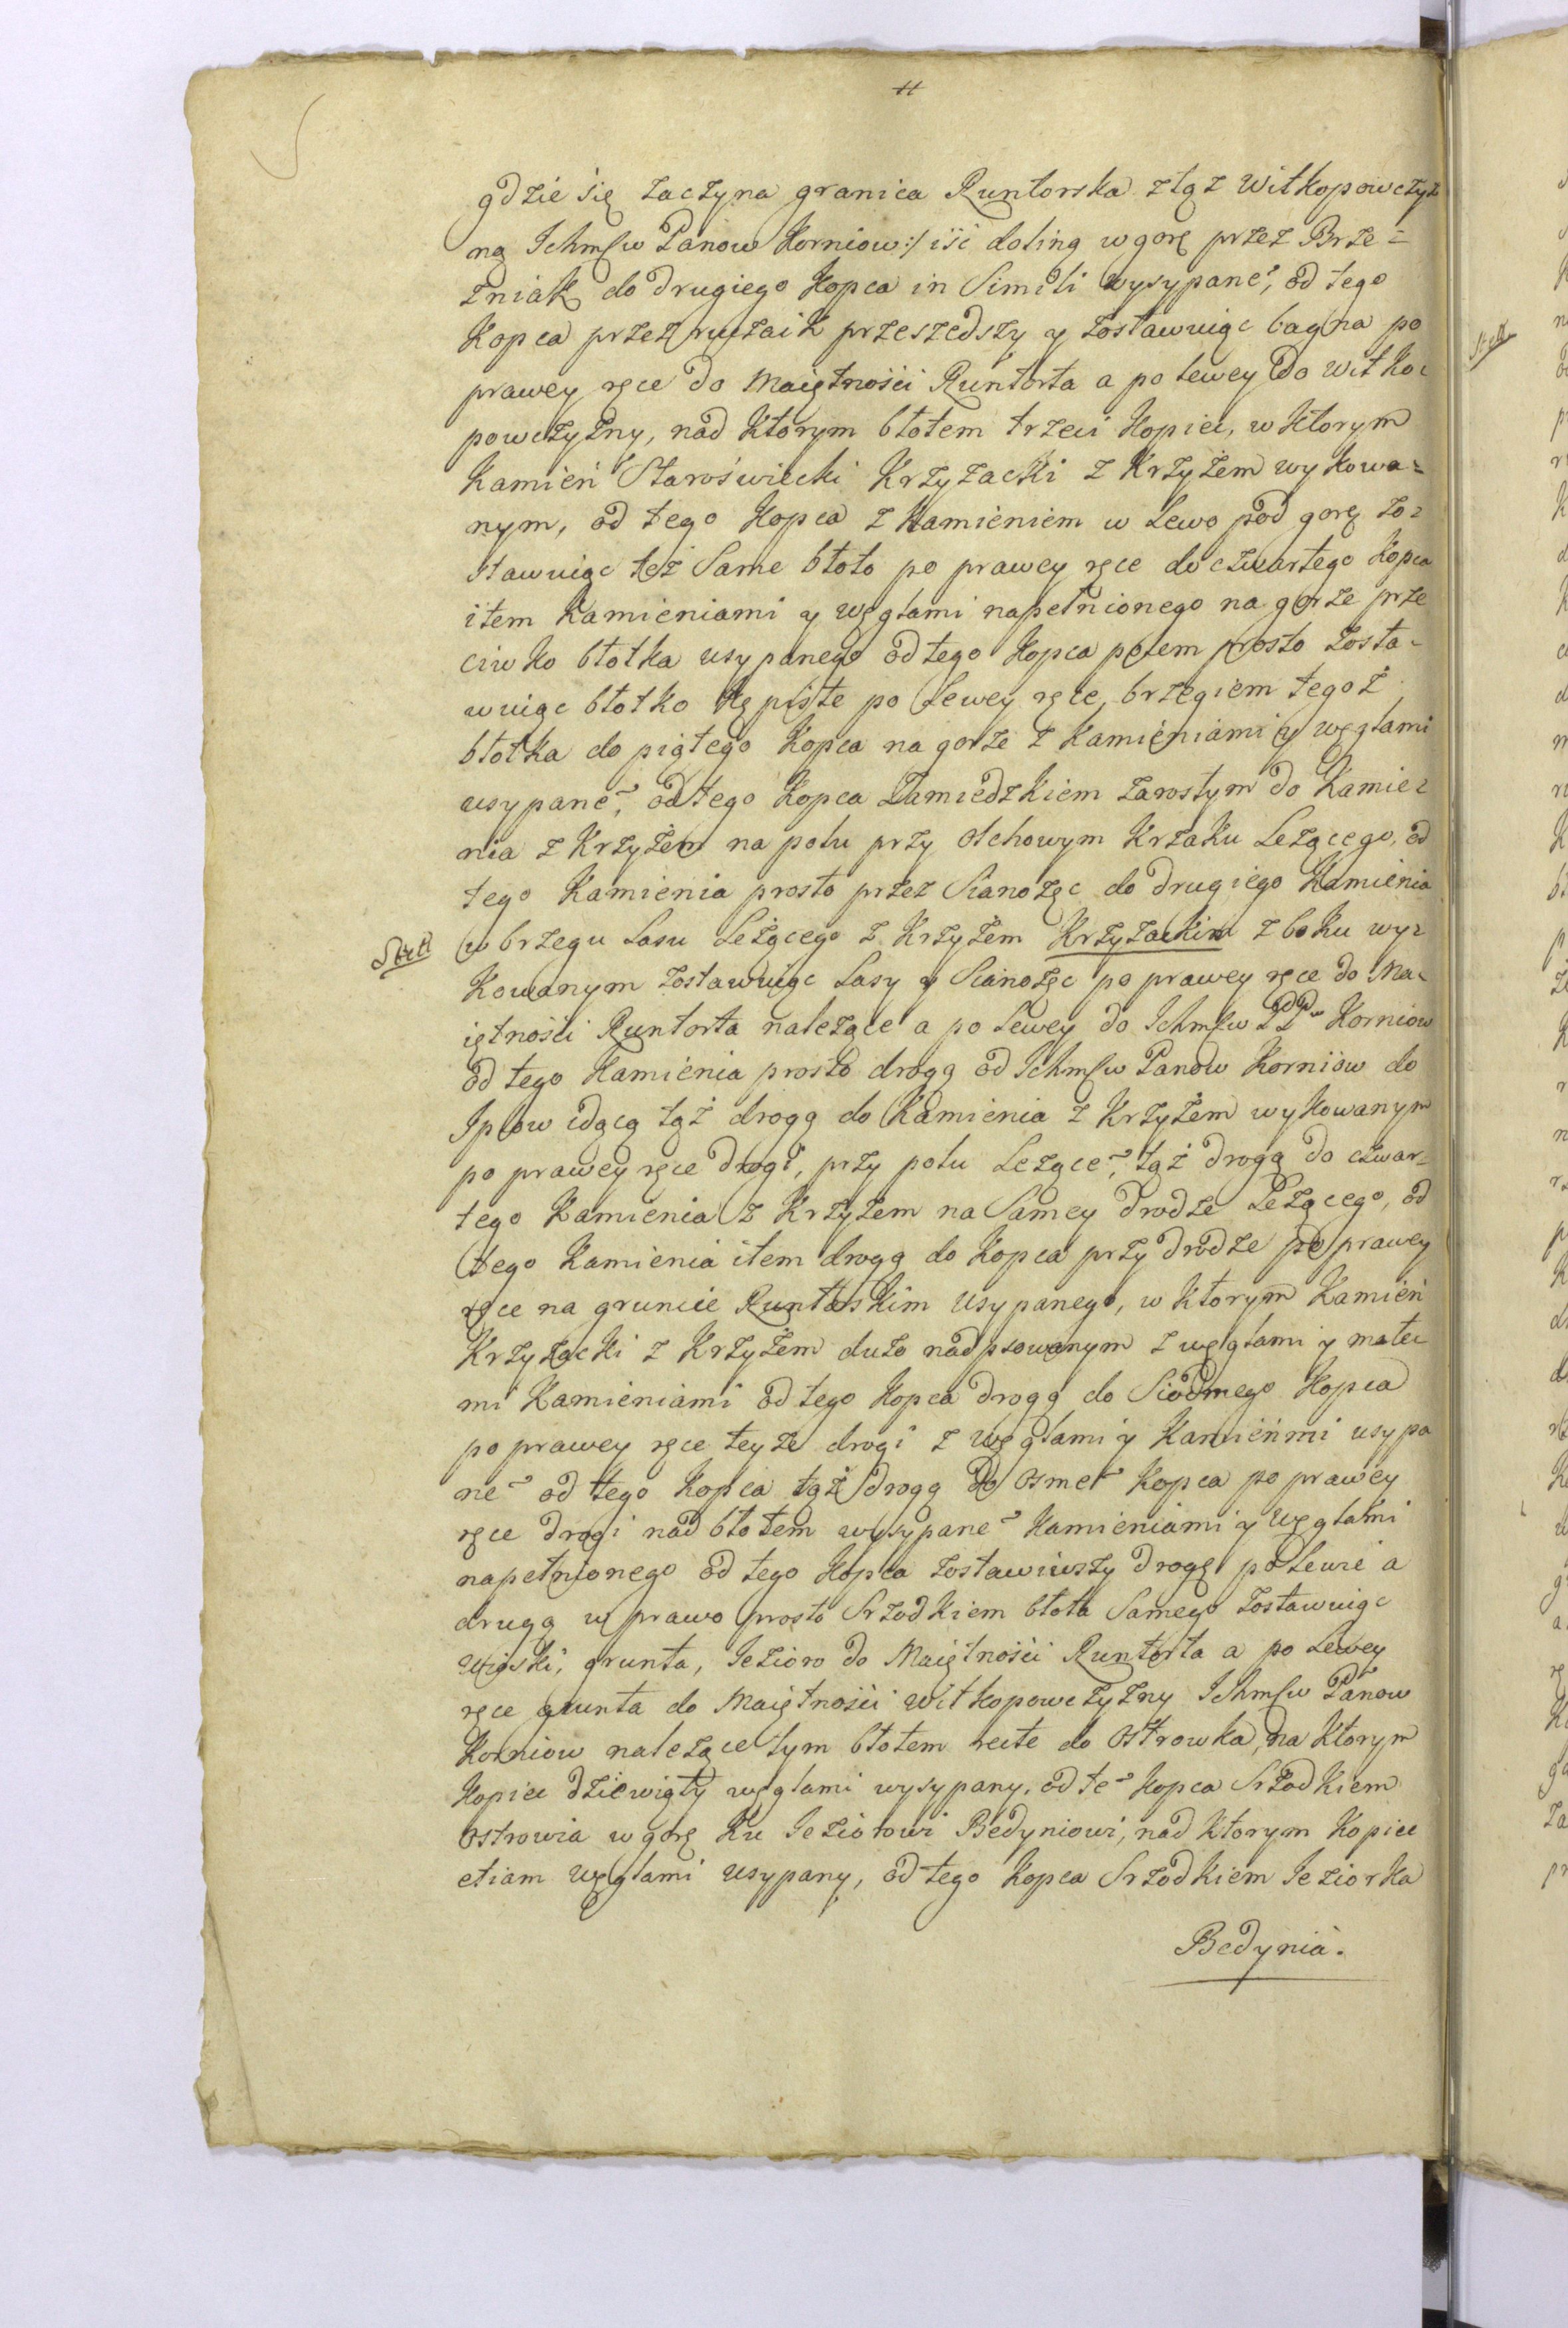 gdzie się zaczyna granica Runtorska z tąz Witkopowczyz
ną Ichmſw Panow Korniow:/ iśc doliną w gorę przez Brze=
zniak do drugiego Kopca in Simili wysypane°, od tego
Kopca przez przeszedszy y zostawuiąc bagna po
prawey ręce do Maiętnośći Runtorta a po lewey do Witko=
powczyzny, nad Ktorym błotem trzeci Kopiec, w Ktorym
Kamień Staroświecki Krzyzacki z Krzyżem wykowa=
nym, od tego Kopca z Kamieniem w Lewo pod gorę zo=
stawuiąc też Same błoto po prawey ręce do czwartego Kopca
item Kamieniami y węglami napełnionego na gorze prze
ciwko błotka usypanego od tego Kopca potem prosto zosta=
wuiąc błotko kępiste po Lewey ręce, brzegiem tegoż
błotka do piątego Kopca na gorze z Kamieniami y węglami
usypane°, od tego Kopca Zamiedzkiem zarostym do Kamie=
nia z Krzyżem na polu przy Olchowym Krzaku Leżącego, od
tego Kamienia prosto przez Sianożęc do drugiego Kamienia
Stck w brzegu Lasu Leżącego z Krzyżem Krzyzackim z boku wy=
Kowanym zostawuiąc Lasy y Sianożęc po prawey ręce do Ma=
iętnośći Runtorta należące a po Lewey do Ichmſw PPw Korniow
od tego Kamienia prosto drogą od Ichmſw Panow Korniow do
Iplow idącą tąż drogą do Kamienia z Krzyżem wykowanym
po prawey ręce drogi, przy polu Leżące°, tąż drogą do czwar=
tego Kamienia z Krzyżem na Samey drodze Leżącego, od
tego Kamienia item drogą do Kopca przy drodze po prawey
ręce na gruncie Runtorskim usypanego, w Ktorym Kamień
Krzyżacki z Krzyżem dużo nadpsowanym z węglami y małe=
mi Kamieniami od tego Kopca drogą do Siodmego Kopca
po prawey ręce teyże drogi z węglami y Kamieńmi usypa
ne° od tego Kopca tąż drogą do osme° Kopca po prawey
ręce drogi nad błotem wysypane° Kamieniami y Węglami
napełnionego od tego Kopca zostawiwszy drogę po Lewie a
drugą w prawo prosto Srzodkiem błota Samego zostawuiąc
wioski, grunta, Jezioro do Maiętnośći Runtorta a po Lewey
ręce grunta do Maiętnośći Witkopowczyzny Ichmſw Panow
Korniow należące tym błotem recte do Ostrowka, na Ktorym
Kopiec dziewiąty węglami wysypany, od te° Kopca Srzodkiem
Ostrowia w gorę Ku Jeziorowi Bedyniowi, nad Ktorym Kopiec
etiam węglami usypany, od tego Kopca Srzodkiem Jeziorka
Bedynia.